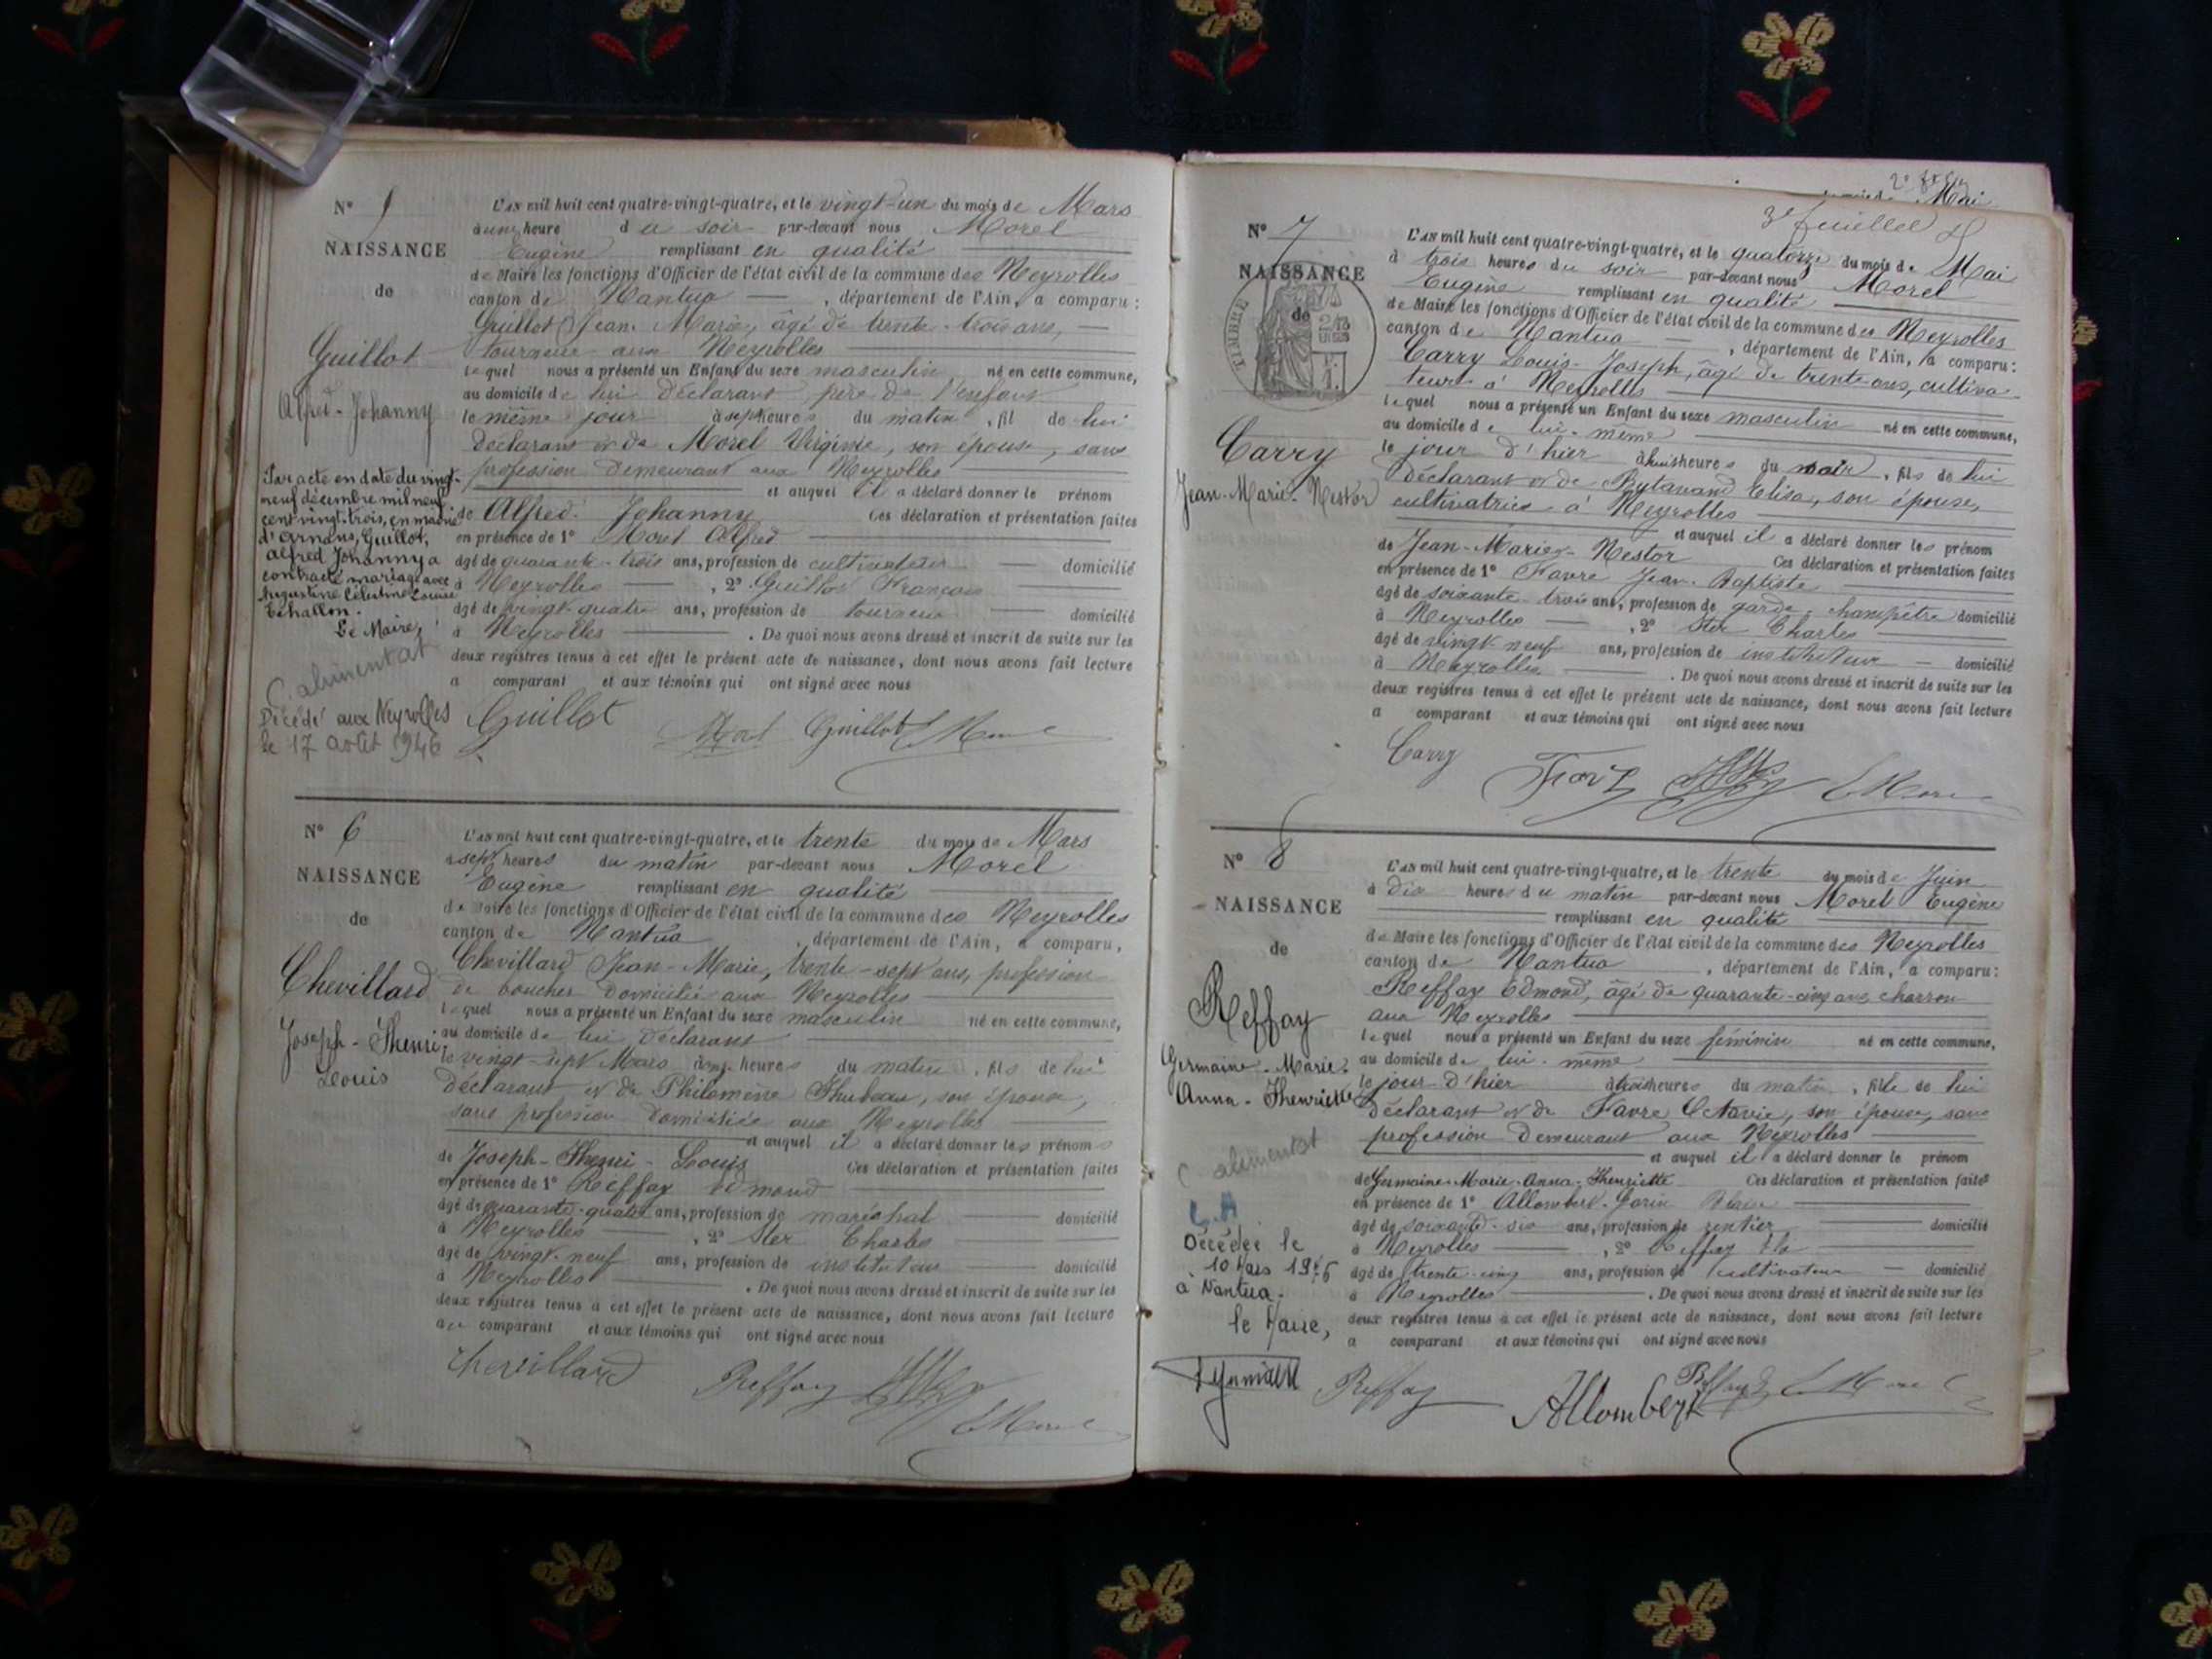 N° 5
NAISSANCE
de
Guillot
Alfred-Johanny
Par acte en date du vingt-
neuf décembre mil neuf
cent vingt-trois, en mairie
d'Arnans, Guillot,
Alfred Johanny a
contracté mariage avec
Augustine Célestine Louise
Echallon.
Le Maire,
C. alimentat
Décédé aux Neyrolles
le 17 août 1946
L'AN mil huit cent quatre-vingt-quatre, et le vingt-un du mois de Mars
à une heure du soir par-devant nous Morel
Eugène remplissant en qualité
de Maire les fonctions d'Officier de l'état civil de la commune des Neyrolles
canton de Nantua, département de l'Ain, a comparu:
Guillot Jean-Marie, âgé de trente-trois ans,
tourneur aux Neyrolles
lequel nous a présenté un Enfant du sexe masculin né en cette commune,
au domicile de lui déclarant père de l'enfant
le même jour à sept heures du matin, fil de lui
déclarant et de Morel Virginie, son épouse, sans
profession demeurant aux Neyrolles
et auquel il a déclaré donner le prénom
de Alfred-Johanny Ces déclaration et présentation faites
en présence de 1° Morel Alfred
âgé de quarante-trois ans, profession de cultivateur domicilié
à Neyrolles, 2° Guillot François
âgé de vingt-quatre ans, profession de tourneur domicilié
à Neyrolles. De quoi nous avons dressé et inscrit de suite sur les
deux registres tenus à cet effet le présent acte de naissance, dont nous avons fait lecture
a comparant et aux témoins qui ont signé avec nous
Guillot Morel Guillot E Morel
N° 6
NAISSANCE
de
Chevillard
Joseph-Henri
Louis
L'AN mil huit cent quatre-vingt-quatre, et le trente du mois de Mars
à sept heures du matin par-devant nous Morel
Eugène remplissant en qualité
de Maire les fonctions d'Officier de l'état civil de la commune des Neyrolles
canton de Nantua, département de l'Ain, a comparu,
Chevillard Jean-Marie, trente-sept ans, profession
de boucher domicilié aux Neyrolles
lequel nous a présenté un Enfant du sexe masculin né en cette commune,
au domicile de lui déclarant
le vingt-sept Mars à onze heures du matin, fils de lui
déclarant et de Philomène Humbeau, son épouse,
sans profession domiciliée aux Neyrolles
et auquel il a déclaré donner les prénoms
de Joseph-Henri-Louis Ces déclaration et présentation faites
en présence de 1° Reffay Edmond
âgé de quarante-quatre ans, profession de maréchal domicilié
à Neyrolles, 2° Ster Charles
âgé de vingt-neuf ans, profession de instituteur domicilié
à Neyrolles. De quoi nous avons dressé et inscrit de suite sur les
deux registres tenus à cet effet le présent acte de naissance, dont nous avons fait lecture
au comparant et aux témoins qui ont signé avec nous
Chevillard Reffay E Morel
2e
Mai
3e feuillet
N° 7
NAISSANCE
de
TIMBRE
Carry
Jean-Marie-Nestor
L'AN mil huit cent quatre-vingt-quatre, et le quatorze du mois de Mai
à trois heures du soir par-devant nous Morel
Eugène remplissant en qualité
de Maire les fonctions d'Officier de l'état civil de la commune des Neyrolles
canton de Nantua, département de l'Ain, a comparu:
Carry Louis-Joseph, âgé de trente ans, cultiva-
teur à Neyrolles
lequel nous a présenté un Enfant du sexe masculin né en cette commune,
au domicile de lui-même
le jour d'hier à huit heures du soir, fils de lui
déclarant et de Bytavand Elisa, son épouse,
cultivatrice à Neyrolles
et auquel il a déclaré donner les prénom
de Jean-Marie-Nestor Ces déclaration et présentation faites
en présence de 1° Favre Jean-Baptiste
âgé de soixante-trois ans, profession de garde-champêtre domicilié
à Neyrolles, 2° Ster Charles
âgé de vingt-neuf ans, profession de instituteur domicilié
à Neyrolles. De quoi nous avons dressé et inscrit de suite sur les
deux registres tenus à cet effet le présent acte de naissance, dont nous avons fait lecture
a comparant et aux témoins qui ont signé avec nous
Carry E Morel
N° 8
NAISSANCE
de
Reffay
Germaine-Marie-
Anna-Henriette
C alimentat
L.A
Décédée le
10 Mars
à Nantua.
le Maire,
L'AN mil huit cent quatre-vingt-quatre, et le trente du mois de Juin
à dix heures du matin par-devant nous Morel Eugène
remplissant en qualité
de Maire les fonctions d'Officier de l'état civil de la commune des Neyrolles
canton de Nantua, département de l'Ain, a comparu:
Reffay Edmond, âgé de quarante-cinq ans, charron
aux Neyrolles
lequel nous a présenté un Enfant du sexe féminin né en cette commune,
au domicile de lui-même
le jour d'hier à trois heures du matin, fille de lui
déclarant et de Favre Octavie, son épouse, sans
profession demeurant aux Neyrolles
et auquel il a déclaré donner le prénom
de Germaine-Marie-Anna-Henriette Ces déclaration et présentation faites
en présence de 1° Allombert-Gorin
âgé de soixante-six ans, profession de rentier domicilié
à Neyrolles, 2° Reffay
âgé de trente-cinq ans, profession de cultivateur domicilié
à Neyrolles. De quoi nous avons dressé et inscrit de suite sur les
deux registres tenus à cet effet le présent acte de naissance, dont nous avons fait lecture
a comparant et aux témoins qui ont signé avec nous
Reffay Allombert Reffay E Morel